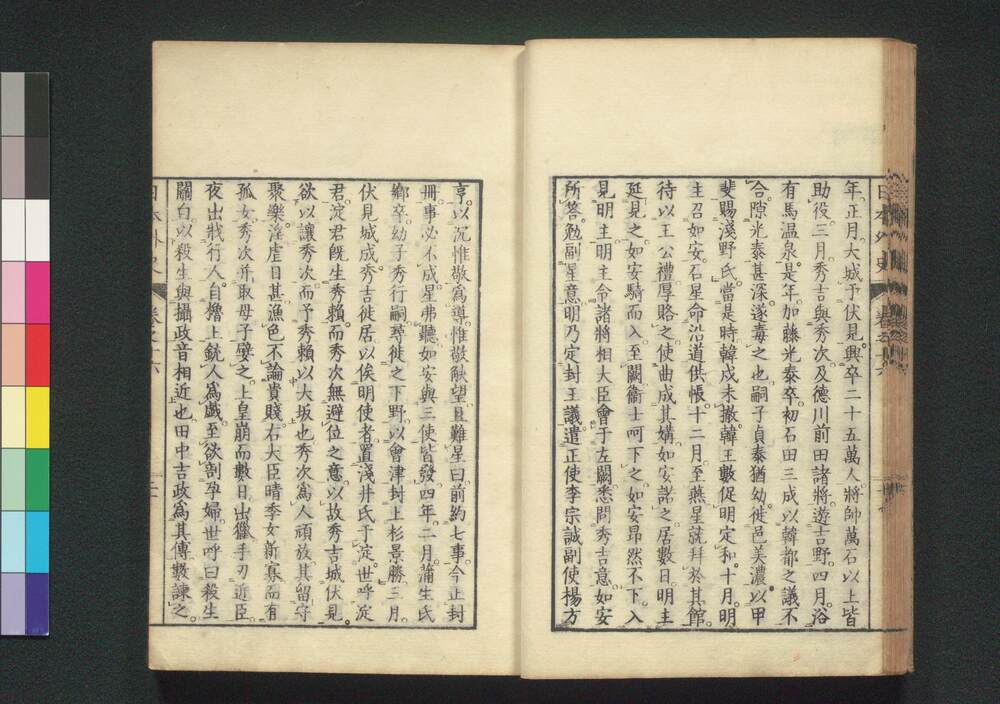 年正月大城于伏見興卒二十五萬人將帥萬石以上皆
助役三月秀吉與秀次及德川前田諸將遊吉野四月浴
有馬温泉是年加藤光泰卒初石田三成以韓都之議不
合隙光泰甚深遂毒之也嗣子貞泰猶幼徙邑美濃以甲
斐賜淺野氏當是時韓戍未撤韓王數促明定和十月明
主召如安石星命沿道供帳十二月至燕星就拜於其館
待以王公禮厚賂之使曲成其媾如安諾之居數日明主
延見之如安騎而入至闕衞士呵下之如安昻然不下入
見明主明主令諸將相大臣會于左闕悉問秀吉意如安
所答勉副星意明乃定封王議遣正使李宗誠副使楊方
亨以沉惟敬爲導惟敬觖望且難星曰前約七事今止封
冊事必不成星弗聽如安與三使皆發四年二月蒲生氏
鄕卒幼子秀行嗣尋徙之下野以會津封上杉景勝三月
伏見城成秀吉徙居以俟明使者置淺井氏于淀世呼淀
君淀君旣生秀賴而秀次無避位之意以故秀吉城伏見
欲以讓秀次而予秀賴以大坂也秀次爲人頑放其留守
聚樂淫虐日甚漁色不論貴賤右大臣晴季女新寡而有
孤女秀次幷取母子嬖之上皇崩而數日出獵手刃近臣
夜出戕行人自櫓上銃人爲戲至欲剖孕婦世呼曰殺生
關白以殺生與攝政音相近也田中吉政爲其傅數諫之
日本外史 卷之十六